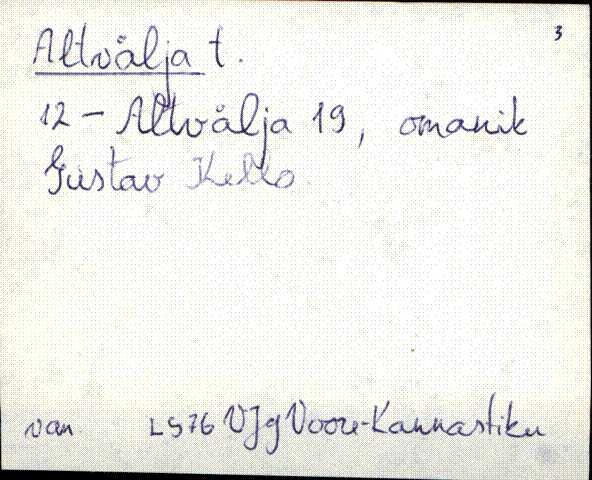 3
Altvälja t.
12 - Altvälja 19, omanik
Gustav Kello
van LS76 VJg Voore-Kannastiku